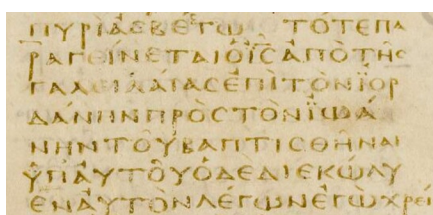 ΠΥΡΙΑСΒΕСΤΩ ΤΟΤΕΠΑ
ΡΑΓΕΙΝΕΤΑΙΟΙ̅С̅ΑΠΟΤΗС
ΓΑΛΕΙΛΑΙΑСΕΠΙΤΟΝΪΟΡ
ΔΑΝΗΝΠΡΟСΤΟΝΪΩΑ
ΝΗΝΤΟΥΒΑΠΤΙСΘΗΝΑΙ
ΥΠΑΥΤΟΥΟΔΕΔΙΕΚΩΛΥ
ΕΝΑΥΤΟΝΛΕΓΩΝΕΓΩΧΡΕΙ